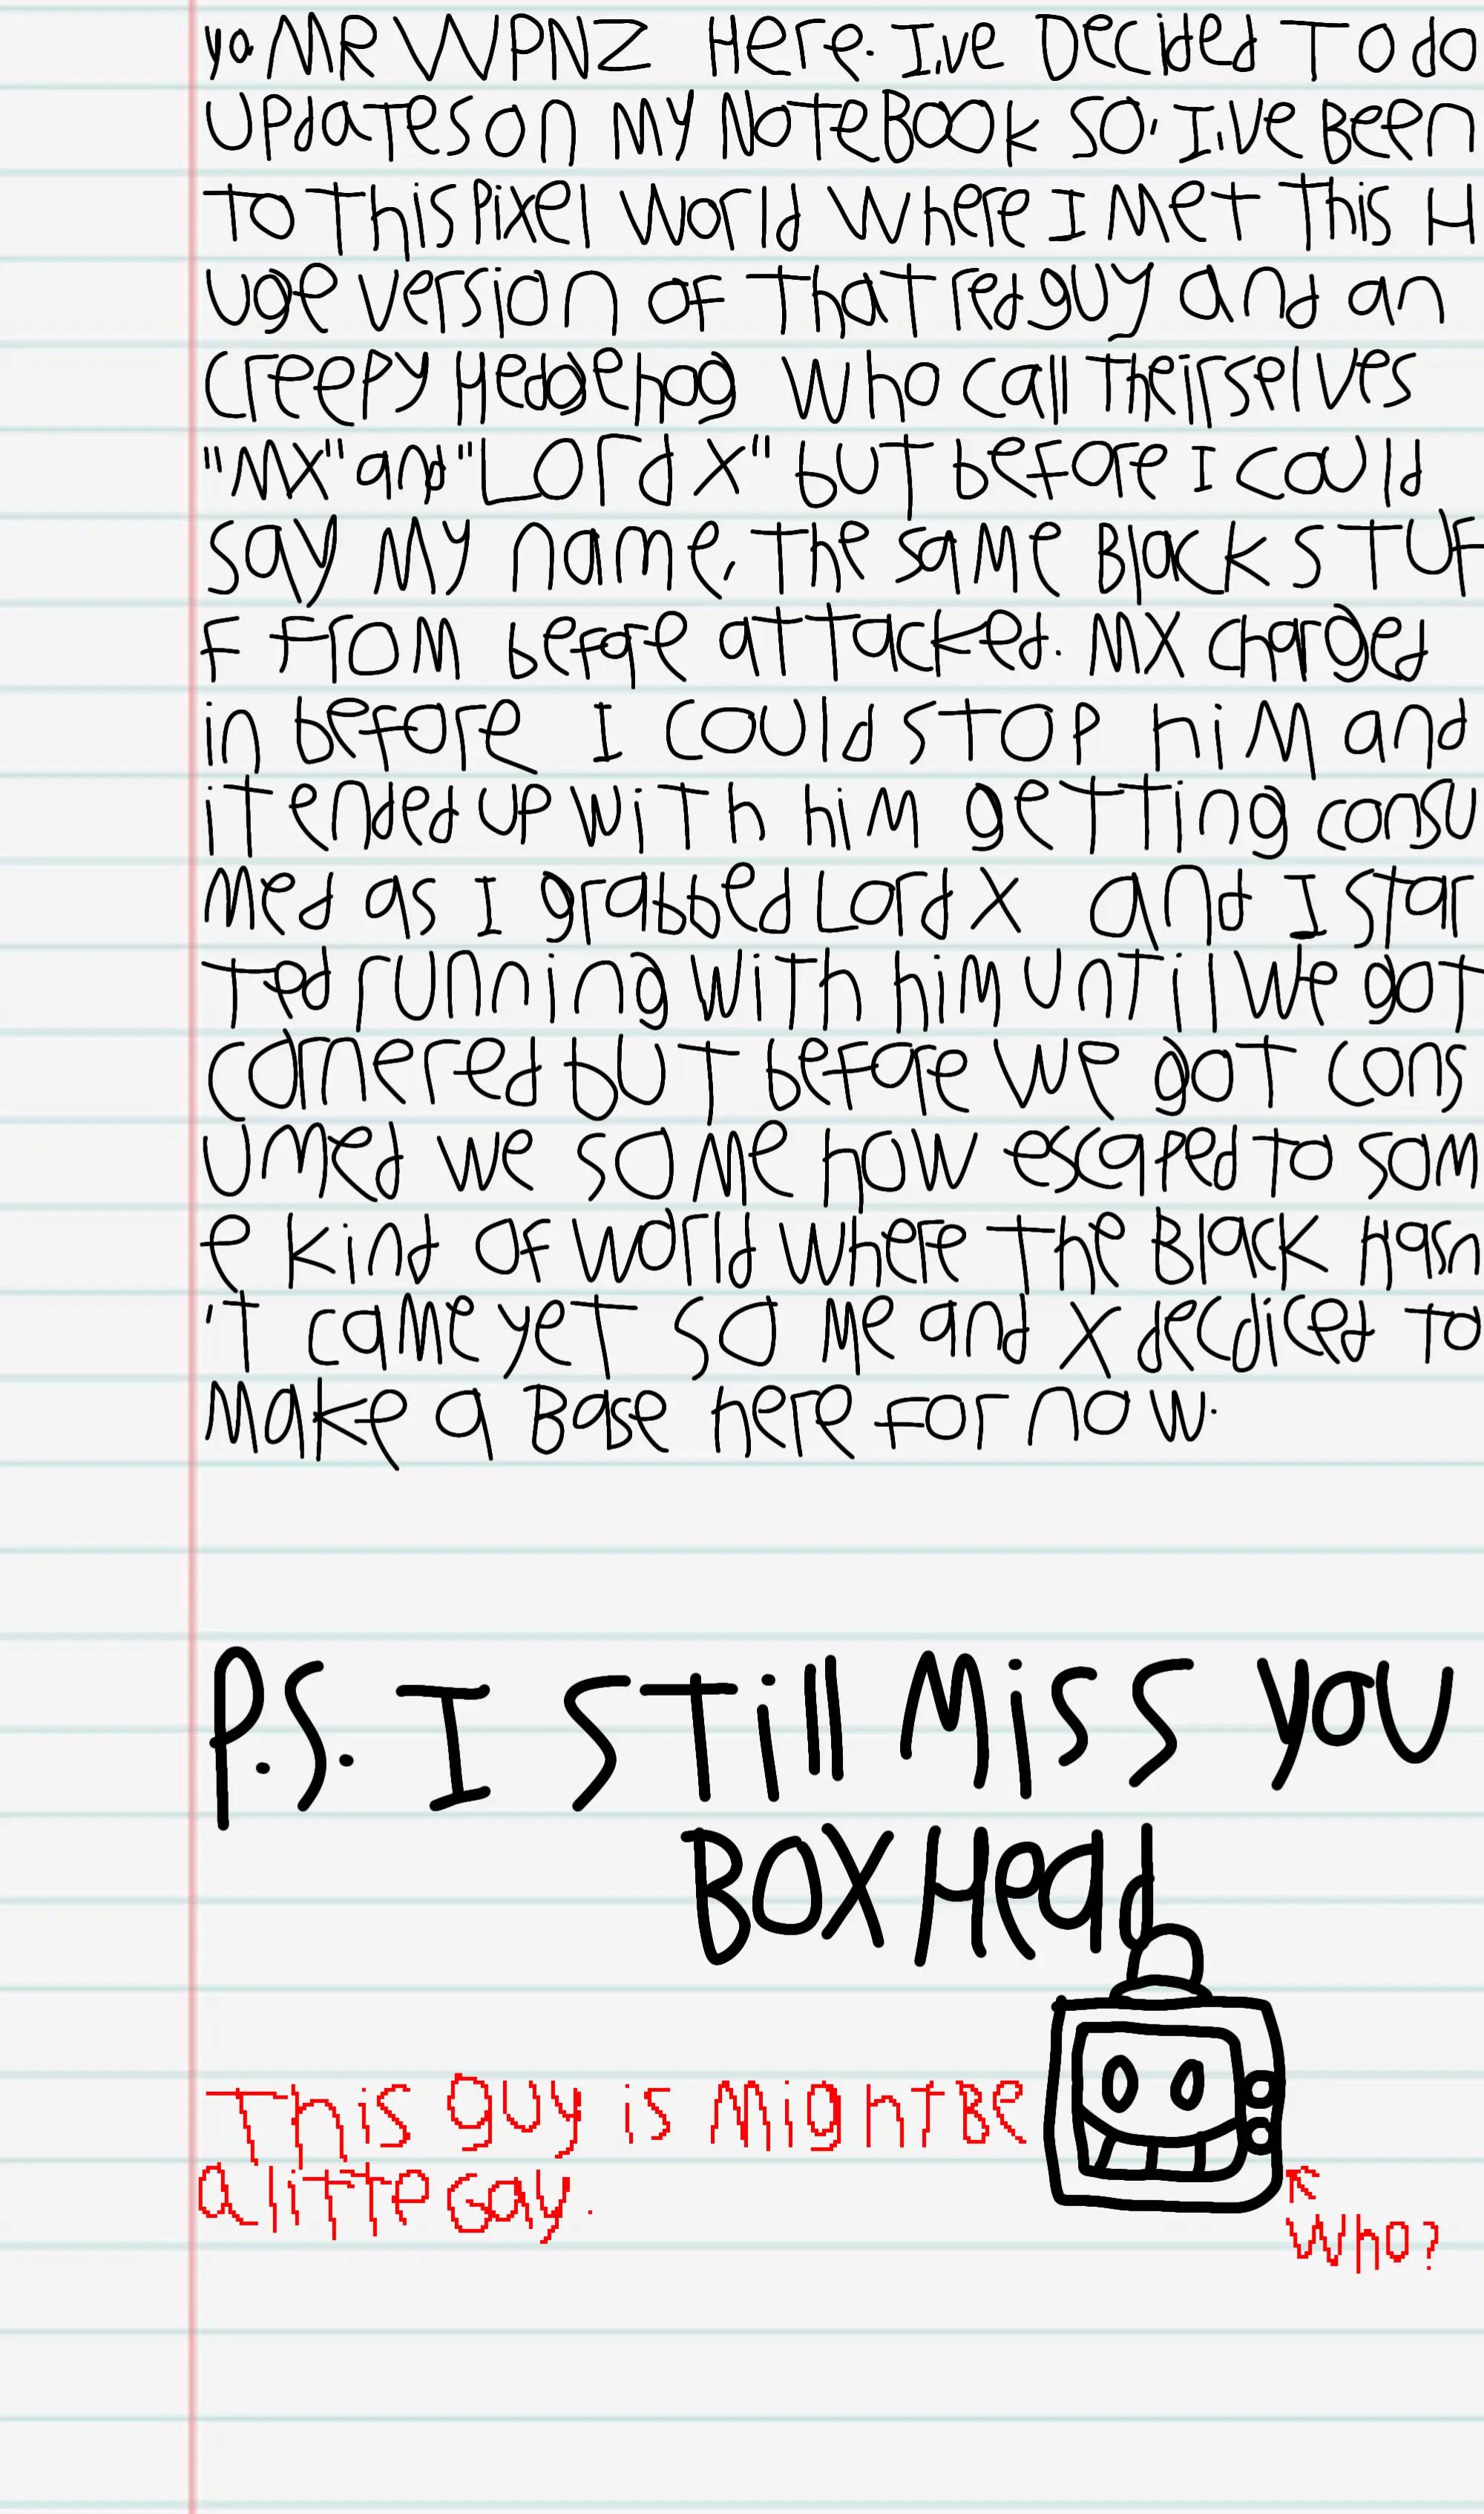 yo. MR WPNZ Here. I,ve Decided To do
UPdates on My NoteBook so. I,ve Been
To This Pixel World Where I Met This H
uge version of That red guy and an
creepy Hedgehog Who call Theirselves
"MX" and "Lord X" but before I could
say My name, The same Black STUF
F From before attacked. MX charged
in before I could stop him and
it ended up with him getting consu
Med as I grabbed Lord X and I star
Ted running with him until we got
cornered but before we got cons
umed we some how escaped to som
e kind of world where The Black hasn
't came yet so Me and X decdiced to
Make a Base here for now.
P.S. I still Miss you
BOX Head
This guy is Might Be
a little Gay.
Who?